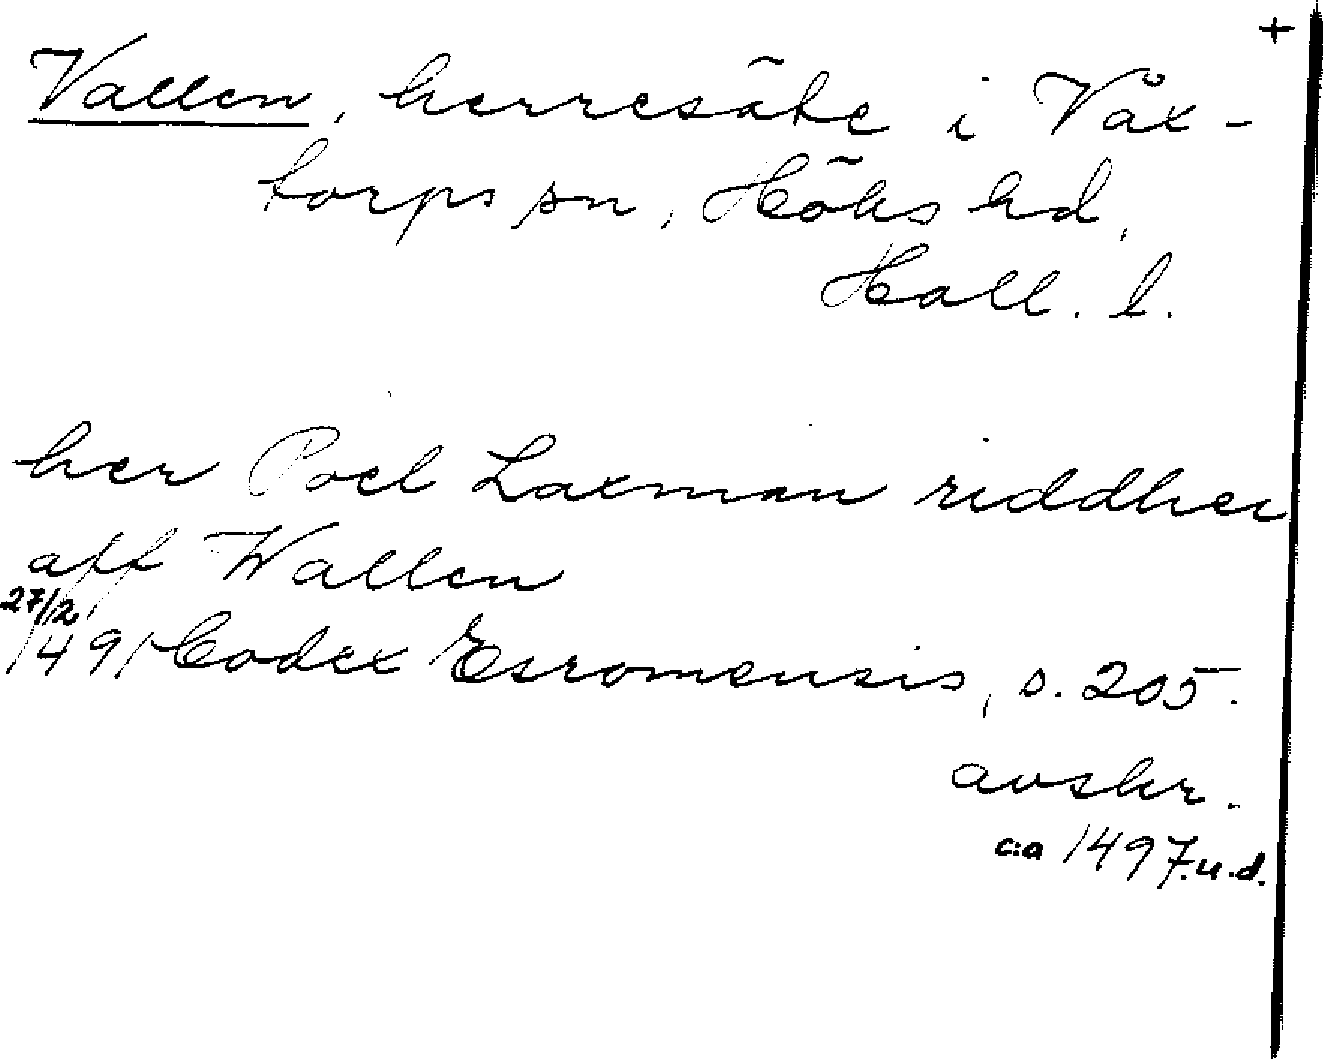 +
Vallen, herresäte i Våx-
torps sn, Höks hd,
Hall. l.
her Poel Laxman riddher
aff Wallen
27/2
1491 Codex Esromensis, s. 205.
avskr.
c:a 1497. u.d.